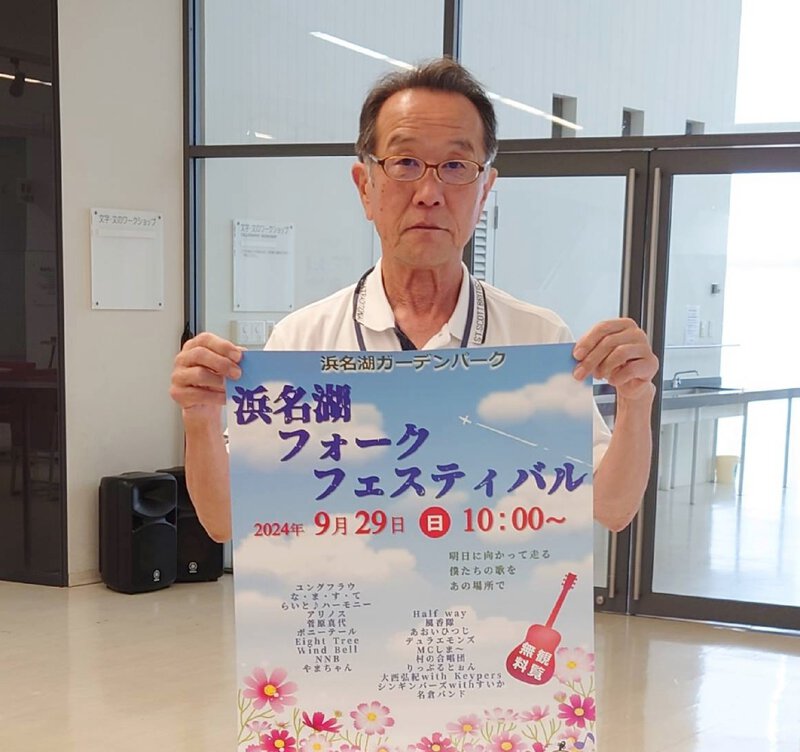 文字・文のワークショップ
文字・文のワークショップ
浜名湖ガーデンパーク
浜名湖
フォーク
フェスティバル
2024年 9月29日 日 10:00~
明日に向かって走る
僕たちの歌を
あの場所で
ユングフラウ
な・ま・す・て
らいと♪ハーモニー
アリノス
菅原真代
ポニーテール
Eight Tree
Wind Bell
NNB
やまちゃん
Half way
風香隊
あおいひつじ
デュラエモンズ
MCしま~
村の合唱団
りっぷるとぉん
大西弘紀with Keypers
シンギンバーズwithすいか
名倉バンド
観覧
無料